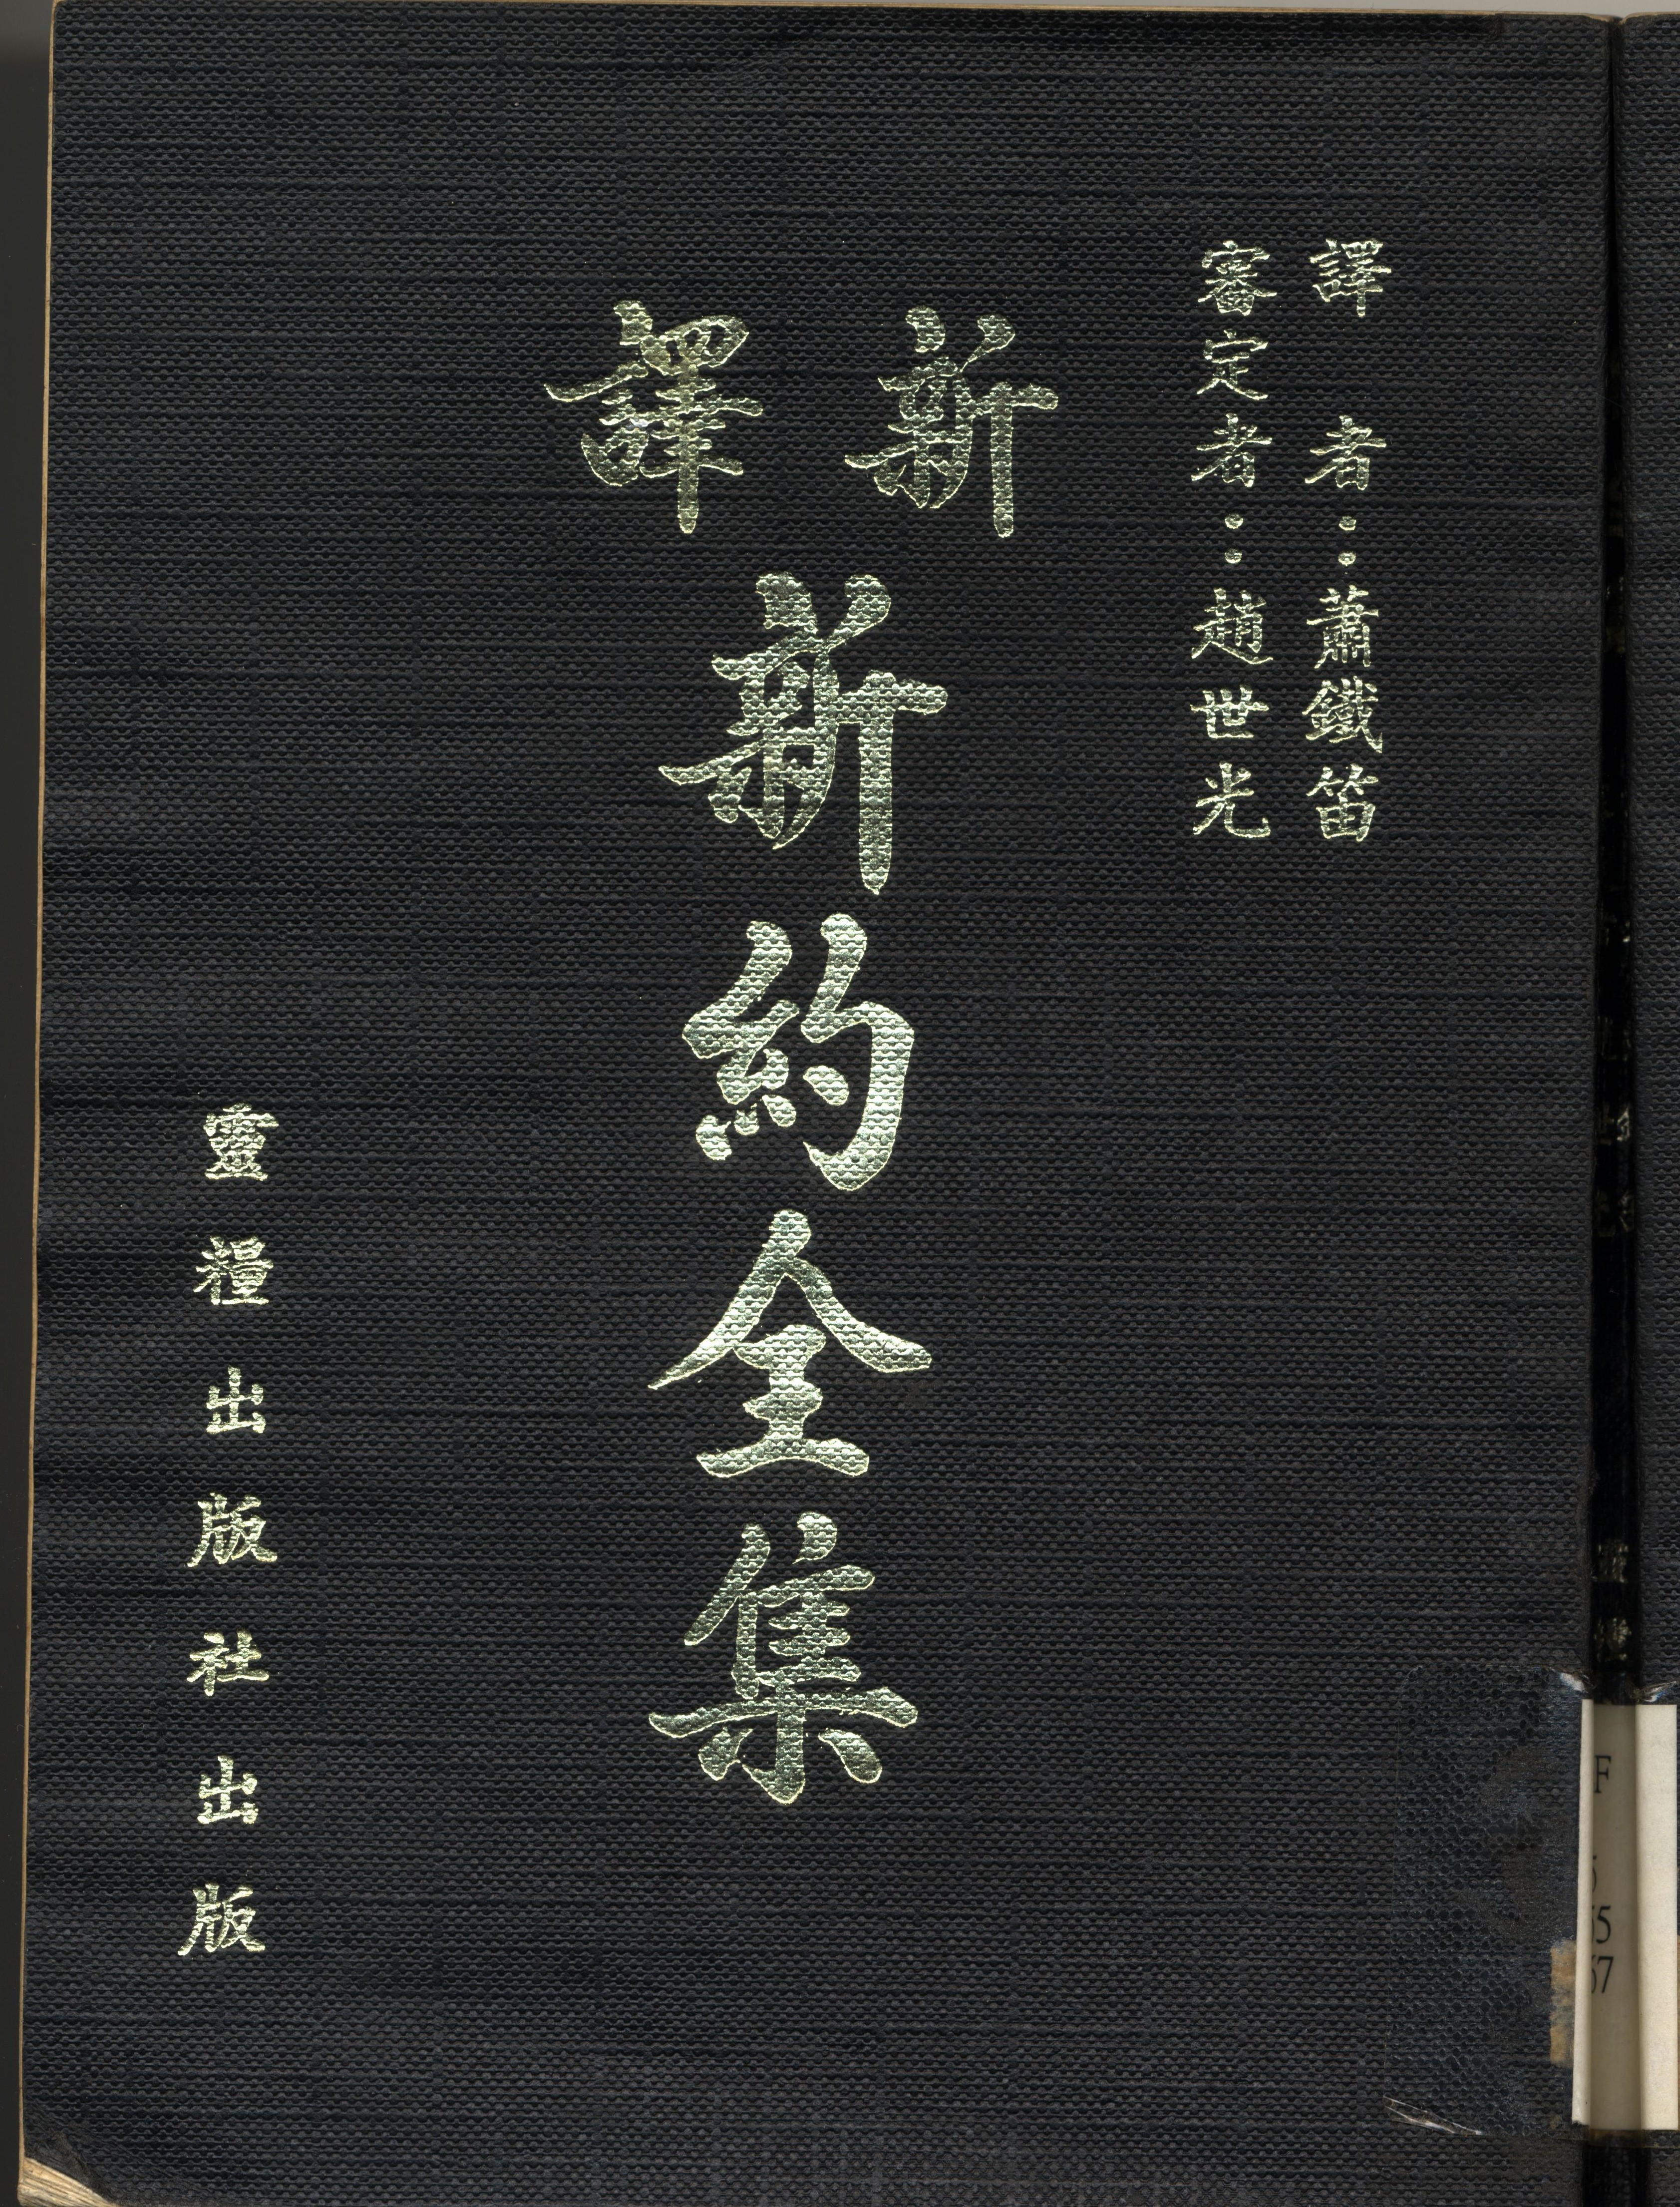 譯　者：蕭鐵笛
審定者：趙世光
新譯
新約全集
靈糧出版社出版
F
5
67